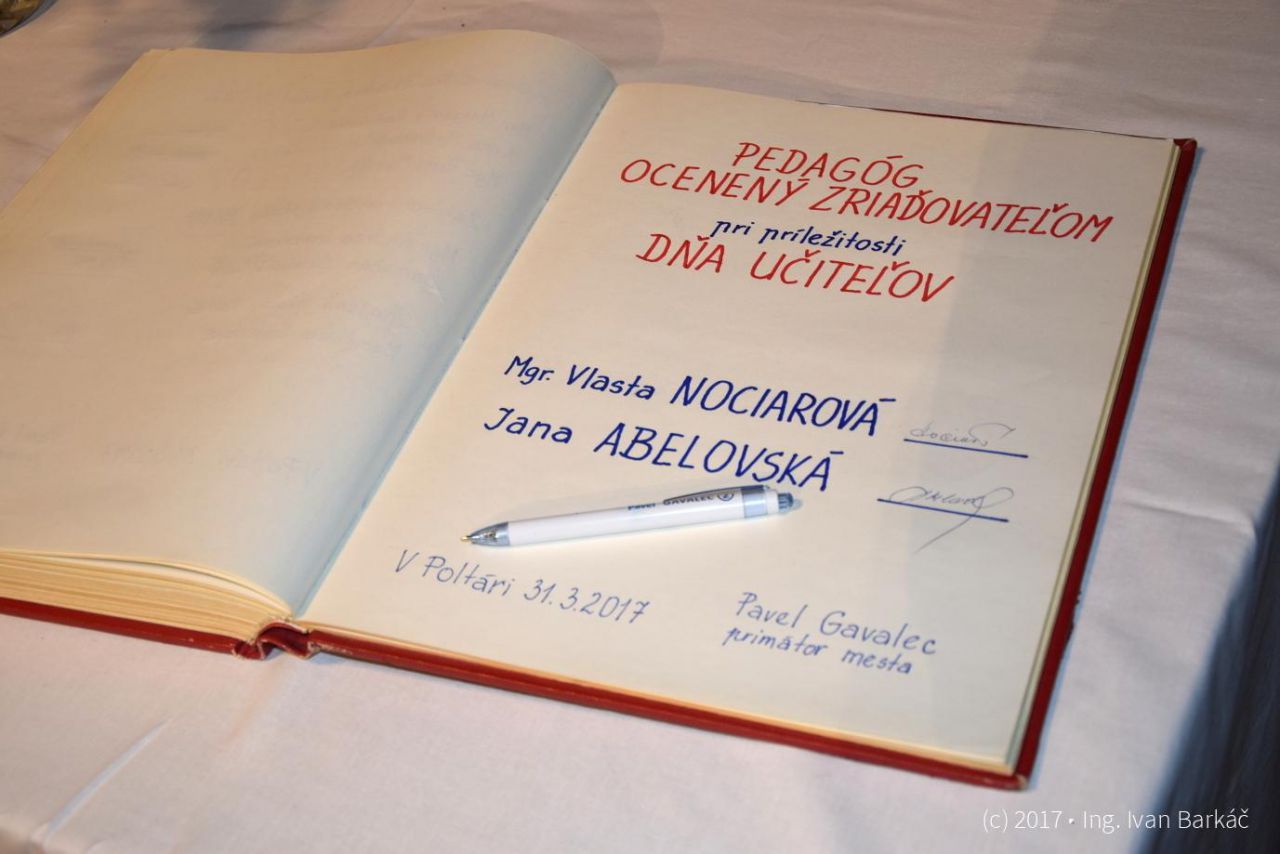 PEDAGÓG
OCENENÝ ZRIAĎOVATEĽOM
pri príležitosti
DŇA UČITEĽOV
Mgr. Vlasta NOCIAROVÁ
Jana ABELOVSKÁ
PAVEL GAVALEC
V Poltári 31.3.2017
Pavel Gavalec
primátor mesta
(c) 2017 • Ing. Ivan Barkáč